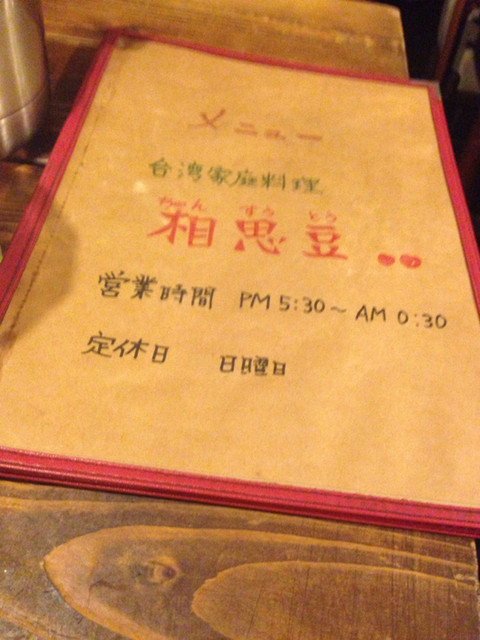 メニュー
台湾家庭料理
しゃん すう とう
相思豆
営業時間 PM 5:30~ AM 0:30
定休日 日曜日